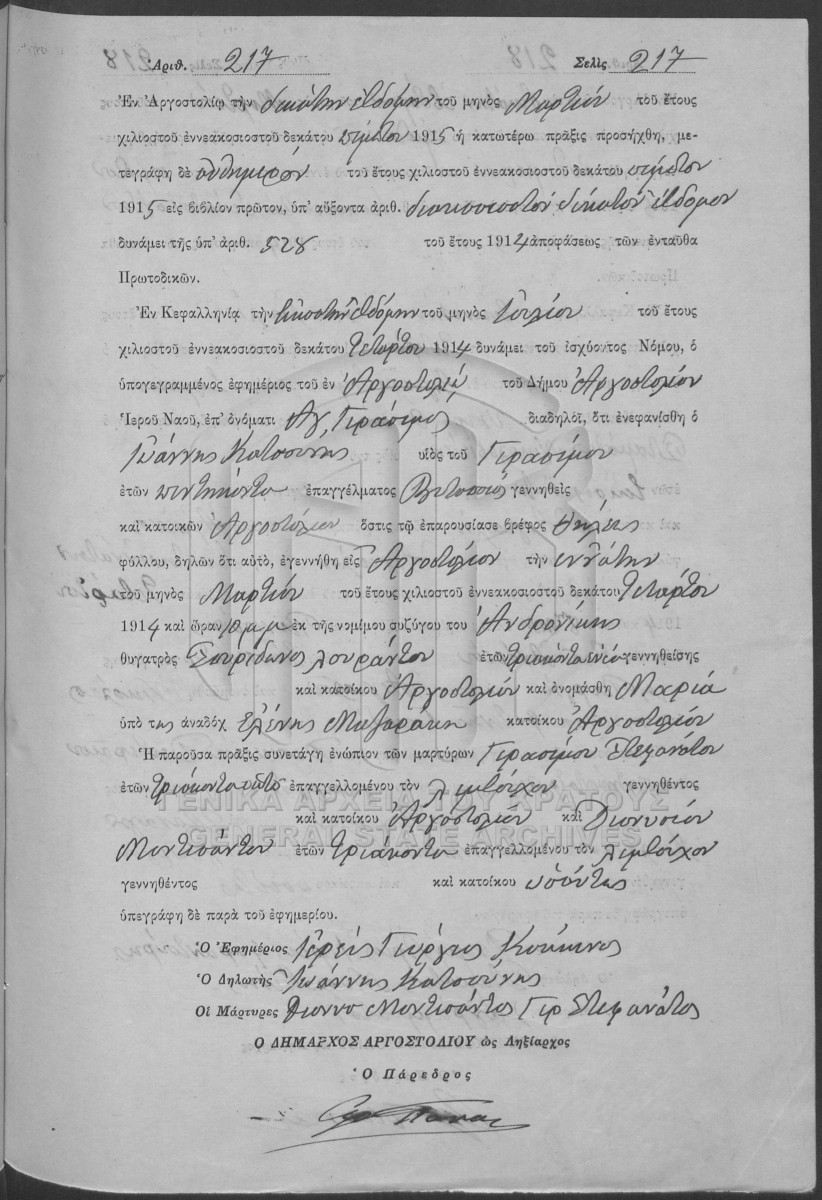 Ἀριθ. 217 Σελὶς 217
Ἐν Ἀργοστολίῳ τὴν δεκάτην ἑβδόμην τοῦ μηνὸς Μαρτίου τοῦ ἔτους
χιλιοστοῦ ἐννεακοσιοστοῦ δεκάτου πέμπτου 1915 ἡ κατωτέρω πρᾶξις προσήχθη, με-
τεγράφη δὲ αὐθημερόν τοῦ ἔτους χιλιοστοῦ ἐννεακοσιοστοῦ δεκάτου πέμπτου
1915 εἰς βιβλίον πρῶτον, ὑπ' αὔξοντα ἀριθ. διακοσιοστόν δέκατον ἕβδομον
δυνάμει τῆς ὑπ' ἀριθ. 528 τοῦ ἔτους 1914 ἀποφάσεως τῶν ἐνταῦθα
Πρωτοδικῶν.
Ἐν Κεφαλληνίᾳ τὴν εἰκοστὴν ἑβδόμην τοῦ μηνὸς Ἰουλίου τοῦ ἔτους
χιλιοστοῦ ἐννεακοσιοστοῦ δεκάτου τετάρτου 1914 δυνάμει τοῦ ἰσχύοντος Νόμου, ὁ
ὑπογεγραμμένος ἐφημέριος τοῦ ἐν Ἀργοστολίῳ τοῦ Δήμου Ἀργοστολίου
Ἱεροῦ Ναοῦ, ἐπ' ὀνόματι Ἁγ. Γεράσιμος διαδηλοῖ, ὅτι ἐνεφανίσθη ὁ
Ἰωάννης Κατσούνης υἱὸς τοῦ Γερασίμου
ἐτῶν πεντήκοντα ἐπαγγέλματος γεννηθεὶς
καὶ κατοικῶν Ἀργοστόλιον ὅστις τῷ ἐπαρουσίασε βρέφος θήλεος
φύλλου, δηλῶν ὅτι αὐτὸ, ἐγεννήθη εἰς Ἀργοστόλιον τὴν ἐννάτην
τοῦ μηνὸς Μαρτίου τοῦ ἔτους χιλιοστοῦ ἐννεακοσιοστοῦ δεκάτου τετάρτου
1914 καὶ ὥραν 10 μ μ ἐκ τῆς νομίμου συζύγου του Ἀνδρονίκης
θυγατρὸς Σπυρίδωνος Λουράντου ἐτῶν τριάκοντα ἐννέα γεννηθείσης
καὶ κατοίκου Ἀργοστολίου καὶ ὀνομάσθη Μαρία
ὑπὸ της ἀναδόχ Ἑλένης Μαζαράκη κατοίκου Ἀργοστολίου
Ἡ παροῦσα πρᾶξις συνετάγη ἐνώπιον τῶν μαρτύρων Γερασίμου Στεφανάτου
ἐτῶν τριάκοντα ὀκτὼ ἐπαγγελλομένου τὸν λεμβοῦχον γεννηθέντος
καὶ κατοίκου Ἀργοστολίου καὶ Διονυσίου
Μοντεσάντου ἐτῶν τριάκοντα ἐπαγγελλομένου τὸν λεμβοῦχον
γεννηθέντος καὶ κατοίκου
ὑπεγράφη δὲ παρὰ τοῦ ἐφημερίου.
Ὁ Ἐφημέριος Ἱερεὺς Γεώργιος
Ὁ Δηλωτὴς Ἰωάννης Κατσούνης
Οἱ Μάρτυρες Διονυσ Μοντεσάντος Γερ Στεφανάτος
Ο ΔΗΜΑΡΧΟΣ ΑΡΓΟΣΤΟΛΙΟΥ ὡς Ληξίαρχος
Ὁ Πάρεδρος
ΓΕΝΙΚΑ ΑΡΧΕΙΑ ΤΟΥ ΚΡΑΤΟΥΣ
GENERAL STATE ARCHIVES